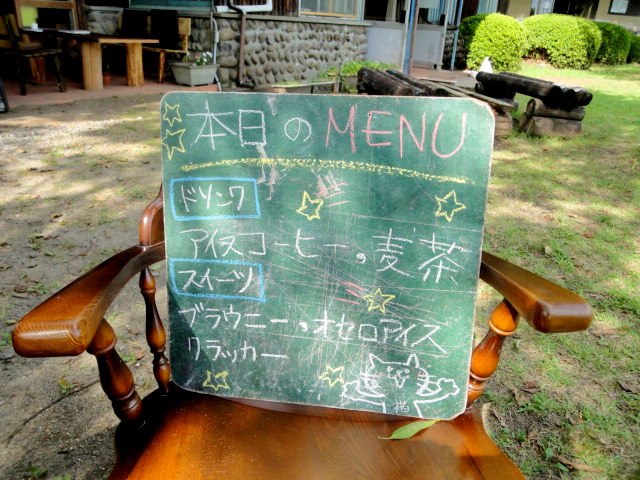 本日のMENU
ドリンク
アイスコーヒー。麦茶
スイーツ
ブラウニー・オセロアイス
クラッカー